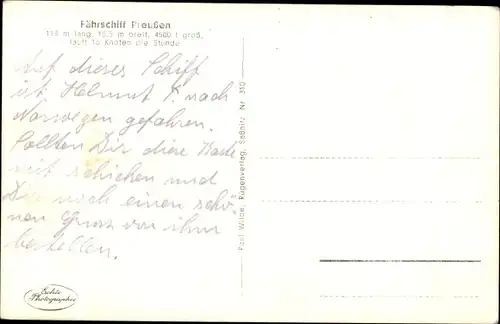 Fährschiff Preußen
113 m lang, 15,5 m breit, 4500 t groß,
läuft 16 Knoten die Stunde
Auf dieses Schiff
ist Helmut T. nach
Norwegen gefahren.
Sollten Dir diese Karte
mit schicken und
Dir noch einen schö-
nen Gruss von ihm
bestellen.
Paul Wilde, Rügenverlag, Saßnitz Nr. 310
Echte
Photographie